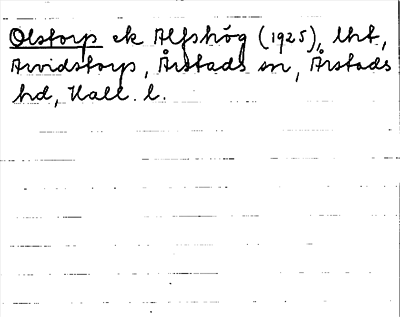 Olstorp ek Alfshög (1925), lht,
Arvidstorp, Årstads sn, Årstads
hd, Hall. l.